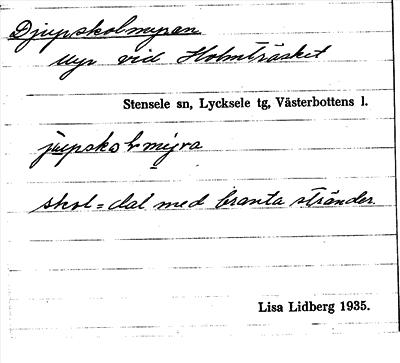 Djupskolmyran
Myr vid Holmträsket
Stensele sn, Lycksele tg, Västerbottens l.
jupskolmyra
skol = dal med branta stränder
Lisa Lidberg 1935.